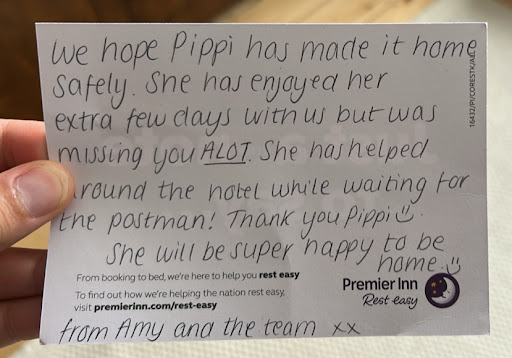 We hope Pippi has made it home
safely. She has enjoyed her
extra few days with us but was
missing you ALOT. She has helped
around the hotel while waiting for
the postman! Thank you Pippi
She will be super happy to be
home
From booking to bed, we're here to help you rest easy
To find out how we're helping the nation rest easy,
visit premierinn.com/rest-easy
Premier Inn
Rest easy
from Amy and the team xx